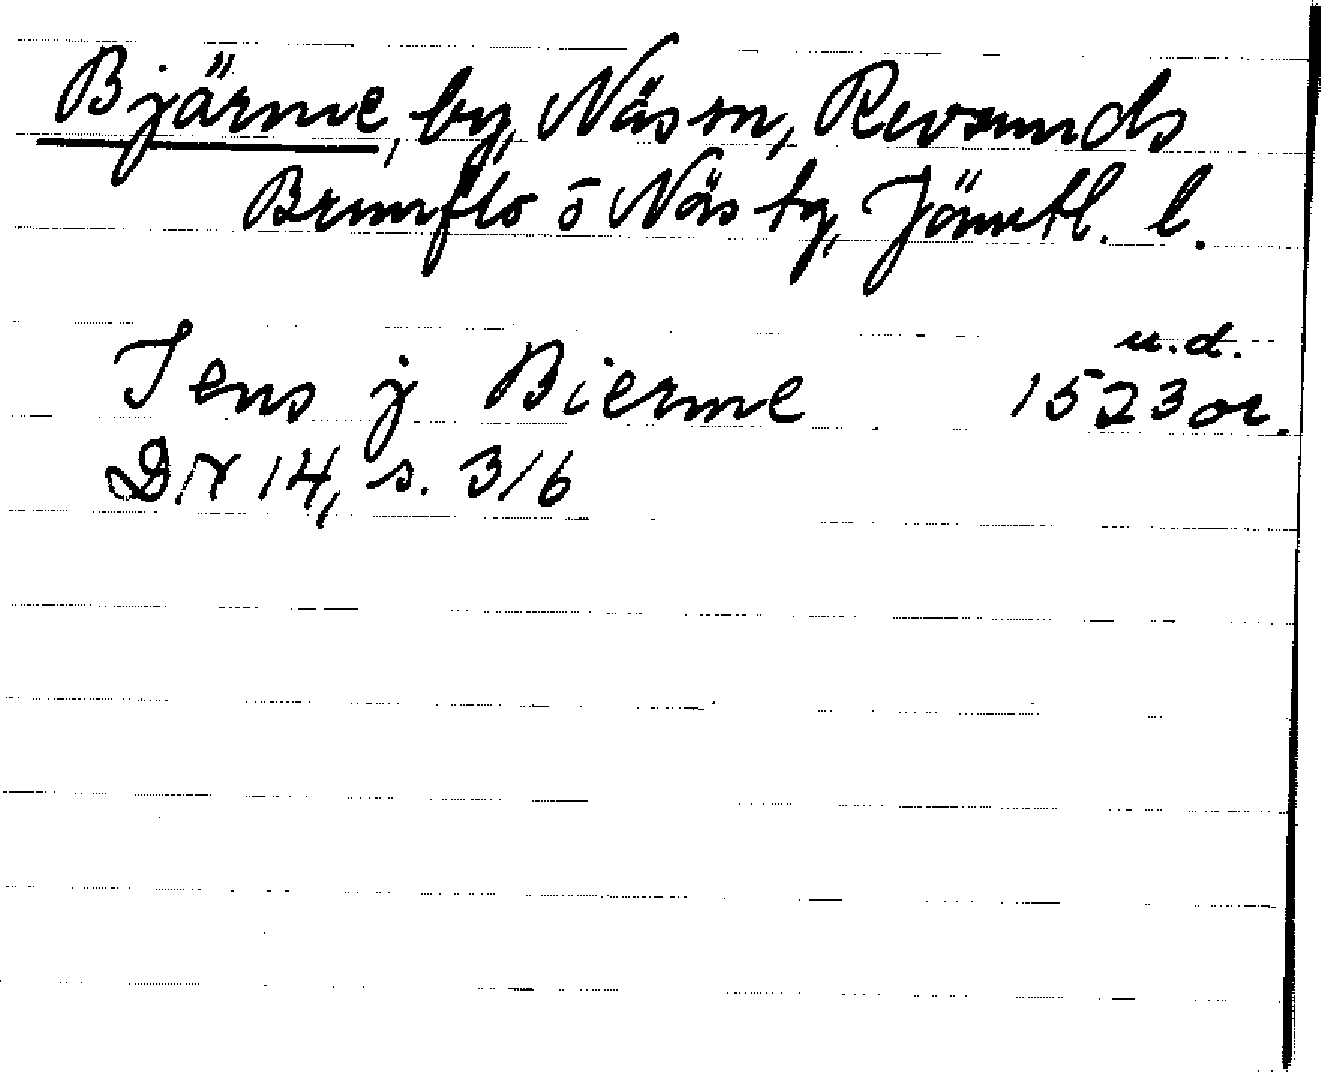 Bjärme, by, Näs sn, Revsunds
Brunflo o Näs tg, Jämtl. l.
u.d.
Jens j Bierme 1523 or.
DN 14, s. 316